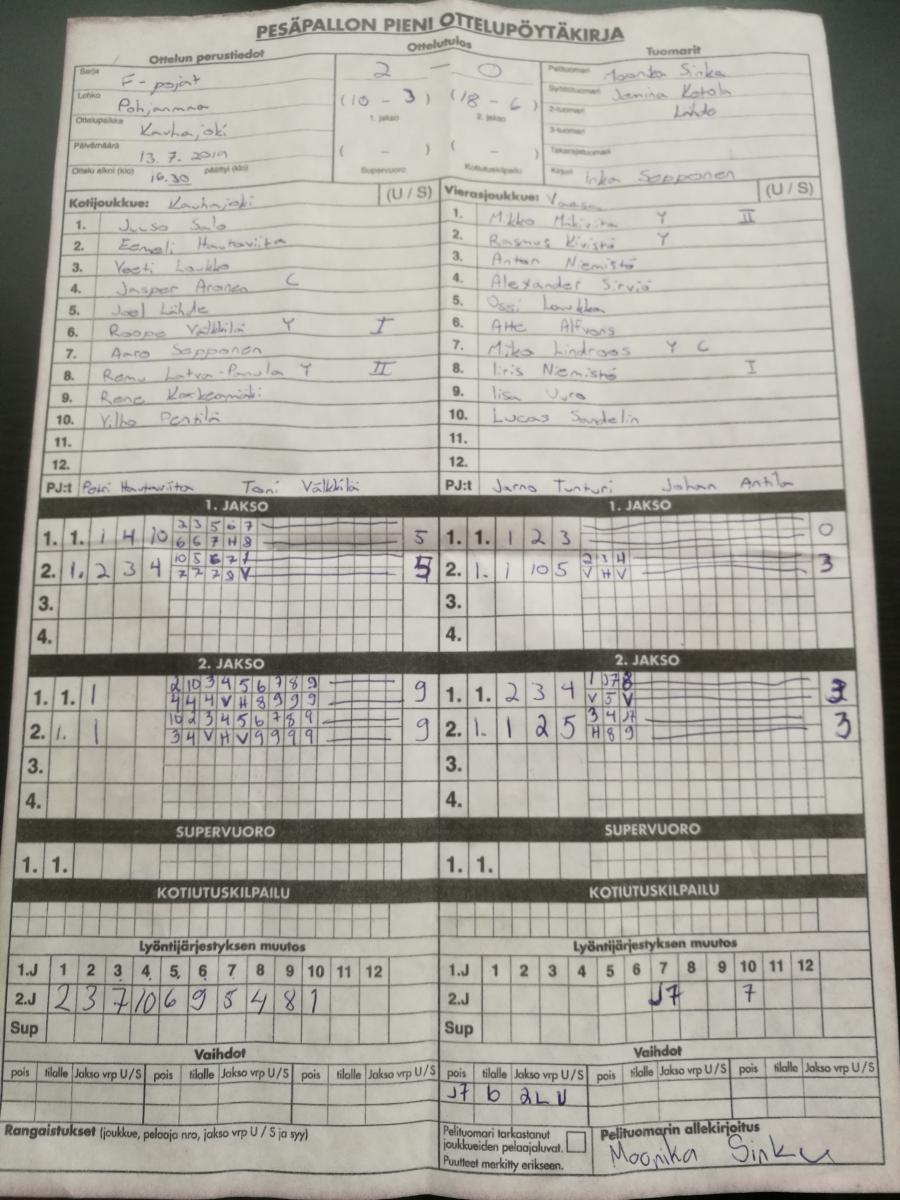 PESÄPALLON PIENI OTTELUPÖYTÄKIRJA
Ottelun perustiedot Ottelutulos Tuomarit
Sarja F-pojat 2 — 0 Pelituomari Moonika Sinku
Lohko Pohjanmaa (10 - 3) (18 - 6) Syöttötuomari Jemina Kotola
1. jakso 2. jakso
Ottelupaikka Kauhajoki 2-tuomari Lähdo
3-tuomari
Päivämäärä 13.7.2019 ( - ) ( - ) Takarajatuomari
Ottelu alkoi (klo) 16.30 päättyi (klo) Supervuoro Kotiutuskilpailu Kirjuri Inka Sepponen
Kotijoukkue: Kauhajoki (U / S) Vierasjoukkue: Vaasa (U / S)
1. Juuso Salo 1. Mikko Y II
2. Eemeli Hautaviita 2. Rasmus Kivistö Y
3. Veeti Loukko 3. Anton Niemistö
4. Jasper Aronen C 4. Alexander Sirviö
5. Joel Lähde 5. Ossi
6. Roope Välkkilä Y I 6. Atte Alfvons
7. Aaro Sepponen 7. Miko Lindroos Y C
8. Remu Latva-Panula Y II 8. Iiris Niemistö I
9. Rene Koskenmäki 9. Iisa Vuro
10. Vilho Penttilä 10. Lucas Sandelin
11. 11.
12. 12.
PJ:t Petri Hautaviita Toni Välkkilä PJ:t Jarno Tunturi Johan Antila
1. JAKSO 1. JAKSO
2 3 5 6 7
1. 1. 1 4 10 5 1. 1. 1 2 3 0
6 6 7 H 8
10 5 6 2 1 2 3 4
2. 1. 2 3 4 5 2. 1. 1 10 5 3
7 7 7 9 V V H V
3. 3.
4. 4.
2. JAKSO 2. JAKSO
2 10 3 4 5 6 7 8 9 1 J7 8
1. 1. 1 9 1. 1. 2 3 4 3
4 4 4 V H 8 9 9 9 V 5 V
10 2 3 4 5 6 7 8 9 3 4 J7
2. 1. 1 9 2. 1. 1 2 5 3
3 4 V H V 9 9 9 9 H 8 9
3. 3.
4. 4.
SUPERVUORO SUPERVUORO
1. 1. 1. 1.
KOTIUTUSKILPAILU KOTIUTUSKILPAILU
Lyöntijärjestyksen muutos Lyöntijärjestyksen muutos
1.J 1 2 3 4 5 6 7 8 9 10 11 12 1.J 1 2 3 4 5 6 7 8 9 10 11 12
2.J 2 3 7 10 6 9 5 4 8 1 2.J J7 7
Sup Sup
Vaihdot Vaihdot
pois tilalle Jakso vrp U / S pois tilalle Jakso vrp U / S pois tilalle Jakso vrp U / S pois tilalle Jakso vrp U / S pois tilalle Jakso vrp U / S pois tilalle Jakso vrp U / S
J7 6 2L U
Rangaistukset (joukkue, pelaaja nro, jakso vrp U / S ja syy) Pelituomari tarkastanut
joukkueiden pelaajaluvat.
Puutteet merkitty erikseen.
Pelituomarin allekirjoitus
Moonika Sinku